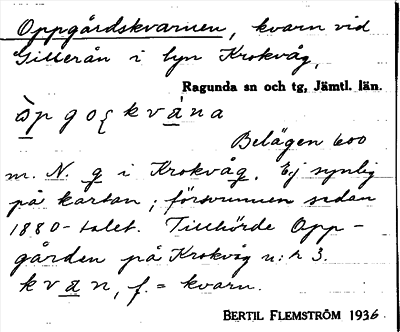 Oppgårdskvarnen, kvarn vid
Gillerån i byn Krokvåg,
Ragunda sn och tg, Jämtl. län.
Belägen 600
m. N. g i Krokvåg. Ej synlig
på kartan; försvunnen sedan
1880-talet. Tillhörde Opp-
gården på Krokvåg n:r 3.
k v a n, f. = kvarn.
BERTIL FLEMSTRÖM 1936